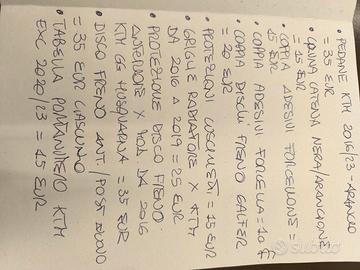 • PEDANE KTM 2016/23 - ARANCIO
= 35 EUR
• CORONA CATENA NERA/ARANCIONE
= 15 EUR
• COPPIA ADESIVI FORCELLONE =
15 EUR
• COPPIA ADESIVI FORCELLA = 10 €
• COPPIA DISCHI FRENO GALFER
= 20 EUR
• PROTEZIONI CUSCINETTI = 15 EUR
• GRIGLIE RADIATORE X KTM
DA 2016 A 2019 = 25 EUR
• PROTEZIONE DISCO FRENO
ANTERIORE X MOD DA 2016
KTM GG HUSQVARNA = 35 EUR
• DISCO FRENO ANT/POST NUOVO
= 35 EUR CIASCUNO
• TABELLA PORTANUMERO KTM
EXC 2020/23 = 45 EUR
subito